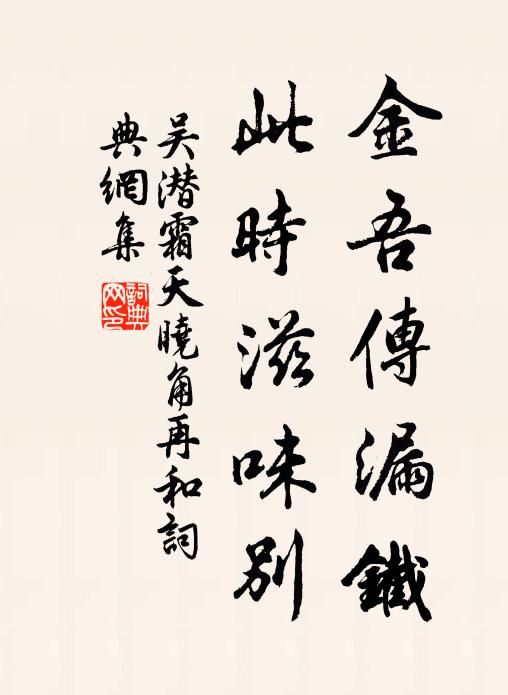 金吾傳漏鐵
此時滋味別
吴潜霜天曉角再和詞
典網集
詞典
网印